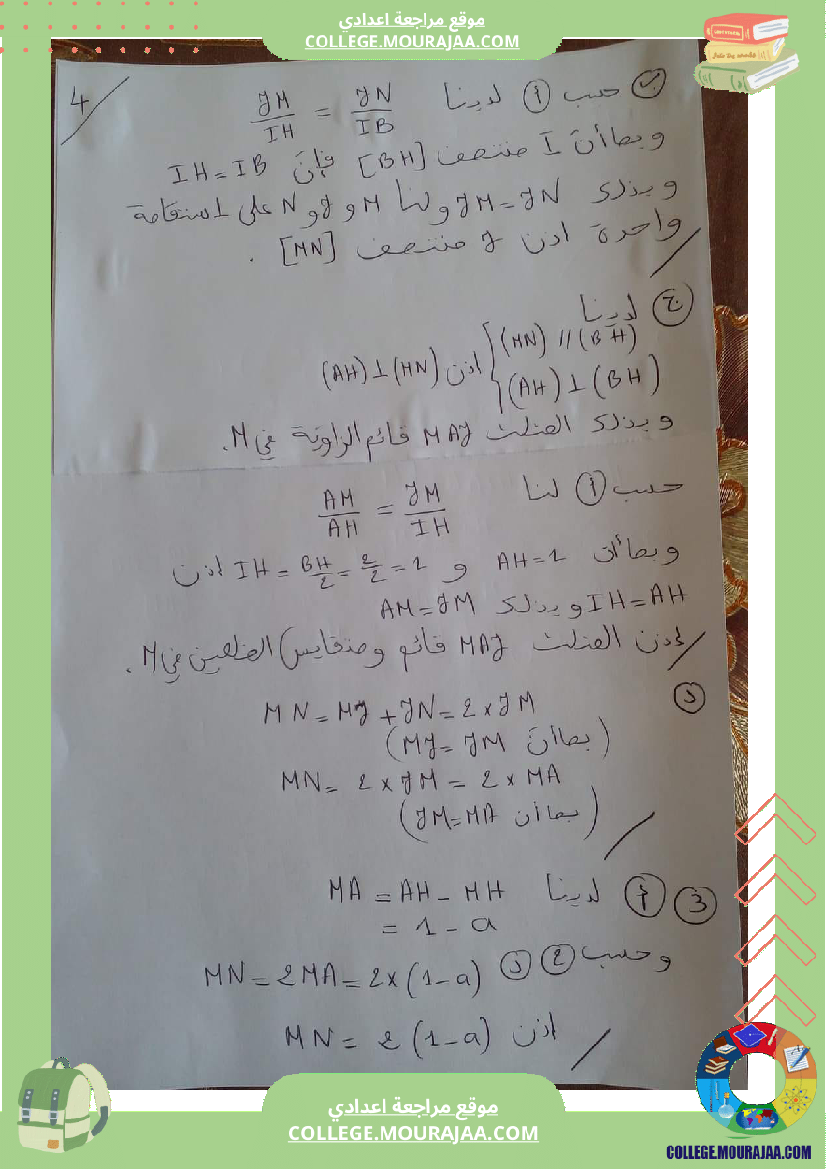 موقع مراجعة اعدادي
COLLEGE.MOURAJAA.COM
4
ب) حسب أ) لدينا JM/IH = JN/IB
وبما أن I منتصف [BH] فإن IH = IB
وبذلك JM = JN ولنا M و J و N على استقامة
واحدة اذن J منتصف [MN] .
ج) لدينا
{ (MN) // (BH)
(AH) ⊥ (BH) اذن (AH) ⊥ (MN)
وبذلك المثلث MAJ قائم الزاوية في M.
حسب أ) لنا AM/AH = JM/IH
وبما أن AH = 1 و IH = BH/2 = 2/2 = 1 اذن
IH = AH وبذلك AM = JM
إذن المثلث MAJ قائم ومتقايس الضلعين في M.
د)
MN = MJ + JN = 2 x JM
(بما أن MJ = JM)
MN = 2 x JM = 2 x MA
(بما أن JM = MA)
3) أ) لدينا MA = AH - MH
= 1 - a
وحسب 2) د) MN = 2MA = 2x(1-a)
اذن MN = 2 (1-a)
موقع مراجعة اعدادي
COLLEGE.MOURAJAA.COM
COLLEGE.MOURAJAA.COM